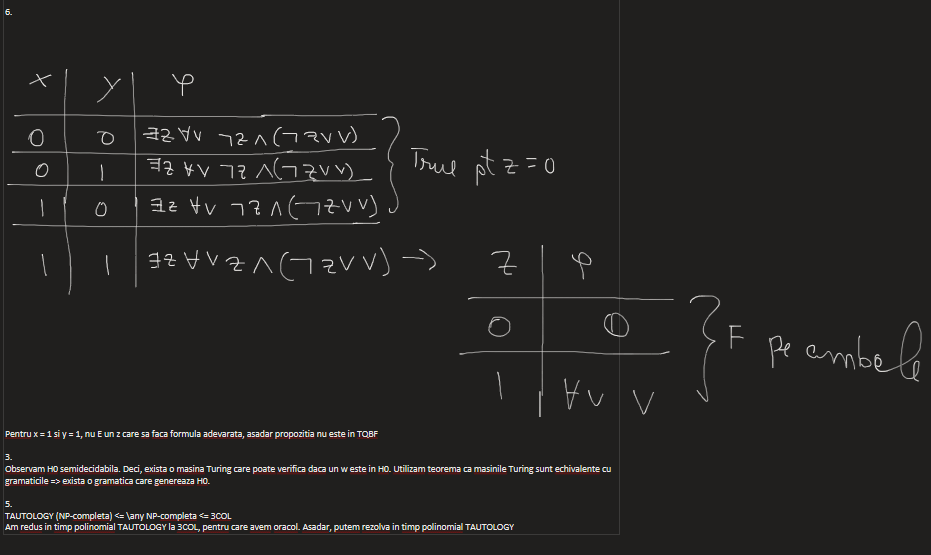 6.
x y φ
0 0 ∃z ∀v ¬z ∧ (¬z ∨ v)
0 1 ∃z ∀v ¬z ∧ (¬z ∨ v)
True pt z = 0
1 0 ∃z ∀v ¬z ∧ (¬z ∨ v)
1 1 ∃z ∀v z ∧ (¬z ∨ v) →
z φ
0 0
F pe ambele
1 ∀v v
Pentru x = 1 si y = 1, nu E un z care sa faca formula adevarata, asadar propozitia nu este in TQBF
3.
Observam H0 semidecidabila. Deci, exista o masina Turing care poate verifica daca un w este in H0. Utilizam teorema ca masinile Turing sunt echivalente cu
gramaticile => exista o gramatica care genereaza H0.
5.
TAUTOLOGY (NP-completa) <= \any NP-completa <= 3COL
Am redus in timp polinomial TAUTOLOGY la 3COL, pentru care avem oracol. Asadar, putem rezolva in timp polinomial TAUTOLOGY